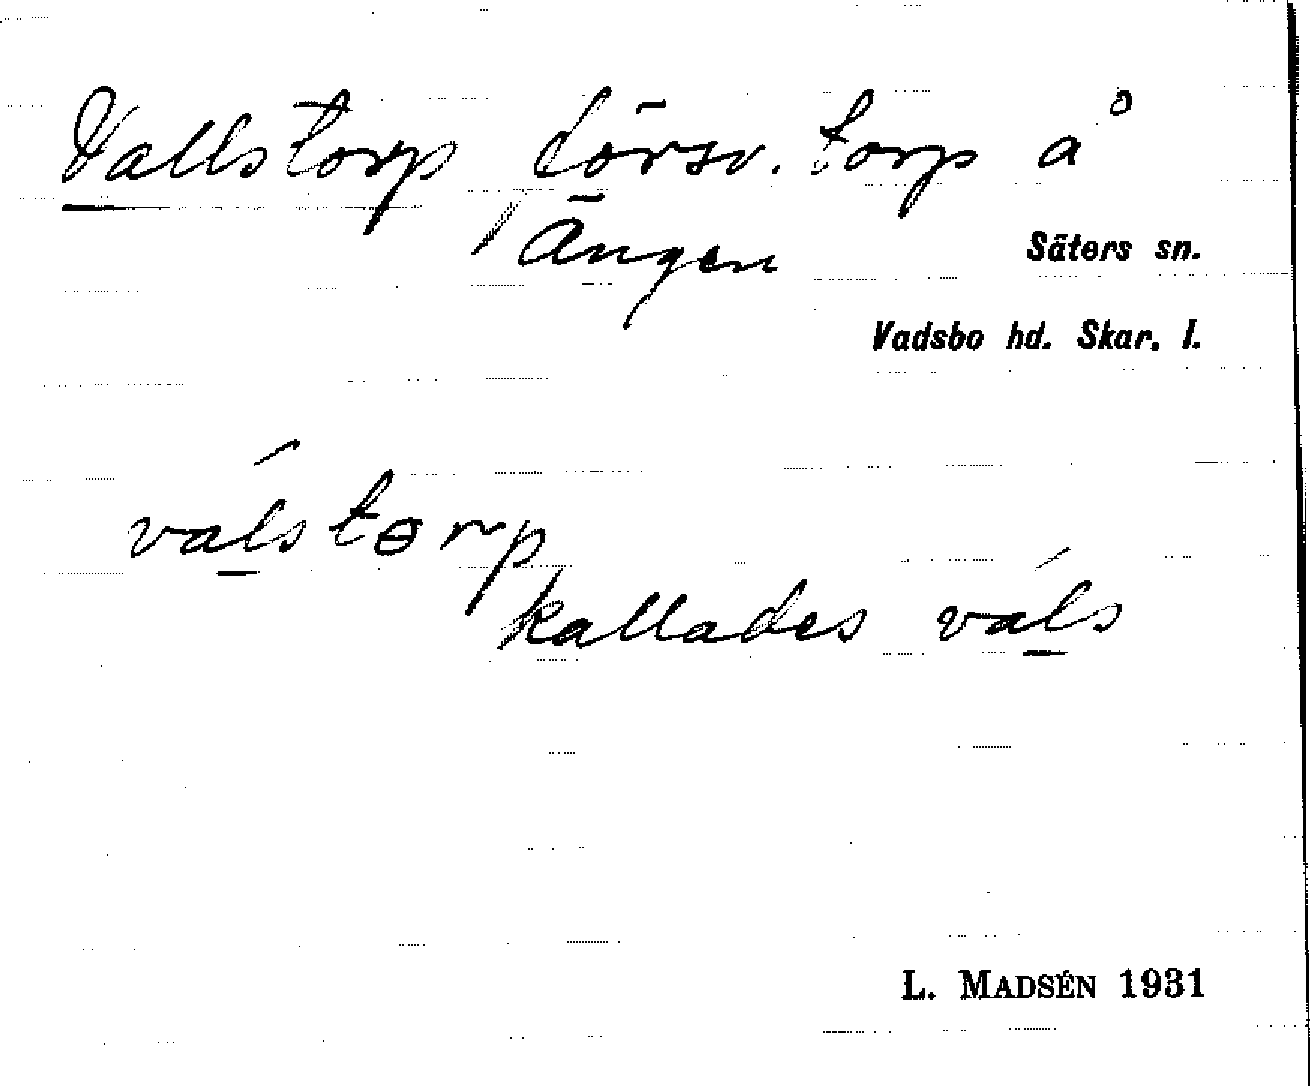 Vallstorp försv. torp å
Ängen
Säters sn.
Vadsbo hd. Skar. l.
válstɵrp
kallades váls
L. MADSÉN 1931